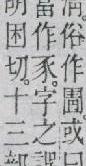 清。俗作圊。或曰
當作豕。字之誤
明困切。十三部